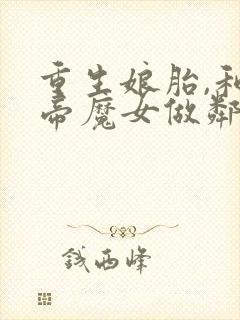 重生娘胎,和
帝魔女做鄰
钱西峰